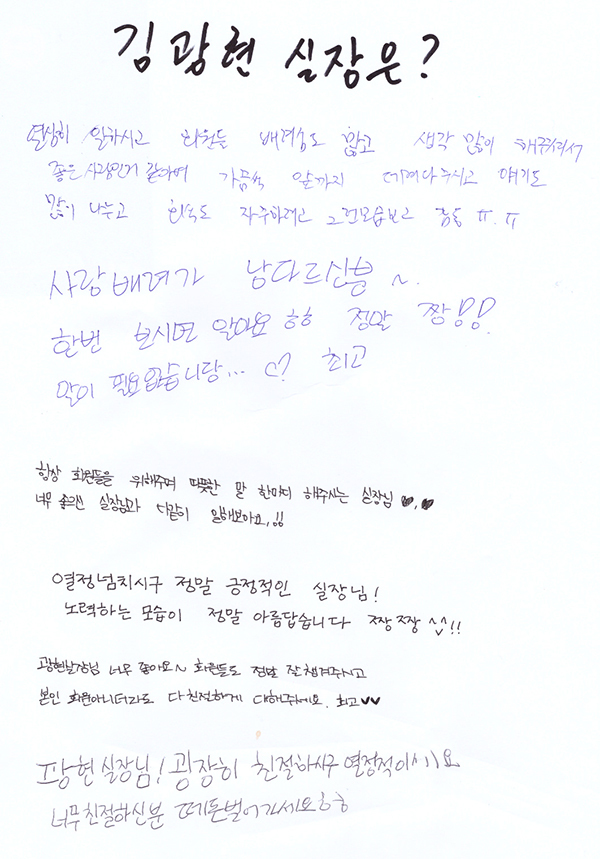 김광현 실장은?
열심히 일하시고 회원들 배려심도 많고 생각 많이 해주셔서
좋은사람인거 같아여 가끔씩 앞까지 데려다주시고 얘기도
많이 나누고 회식도 자주하려고 그런모습보고 감동 ㅠ.ㅠ
사랑배려가 남다르신분~.
한번 보시면 알아요 ㅎㅎ 정말 짱!!
말이 필요없습니당... ♡ 최고
항상 회원들을 위해주며 따뜻한 말 한마디 해주시는 실장님 ♥.♥
너무 좋으신 실장님과 다같이 일해보아요.!!
열정넘치시구 정말 긍정적인 실장님!
노력하는 모습이 정말 아름답습니다 짱짱 ^^!!
광현실장님 너무 좋아요~ 회원들도 정말 잘챙겨주시고
본인 회원아니더라도 다 친절하게 대해주세요. 최고♥♥
광현실장님! 굉장히 친절하시구 열정적이시요
너무친절하신분 떼돈벌어가세요ㅎㅎ